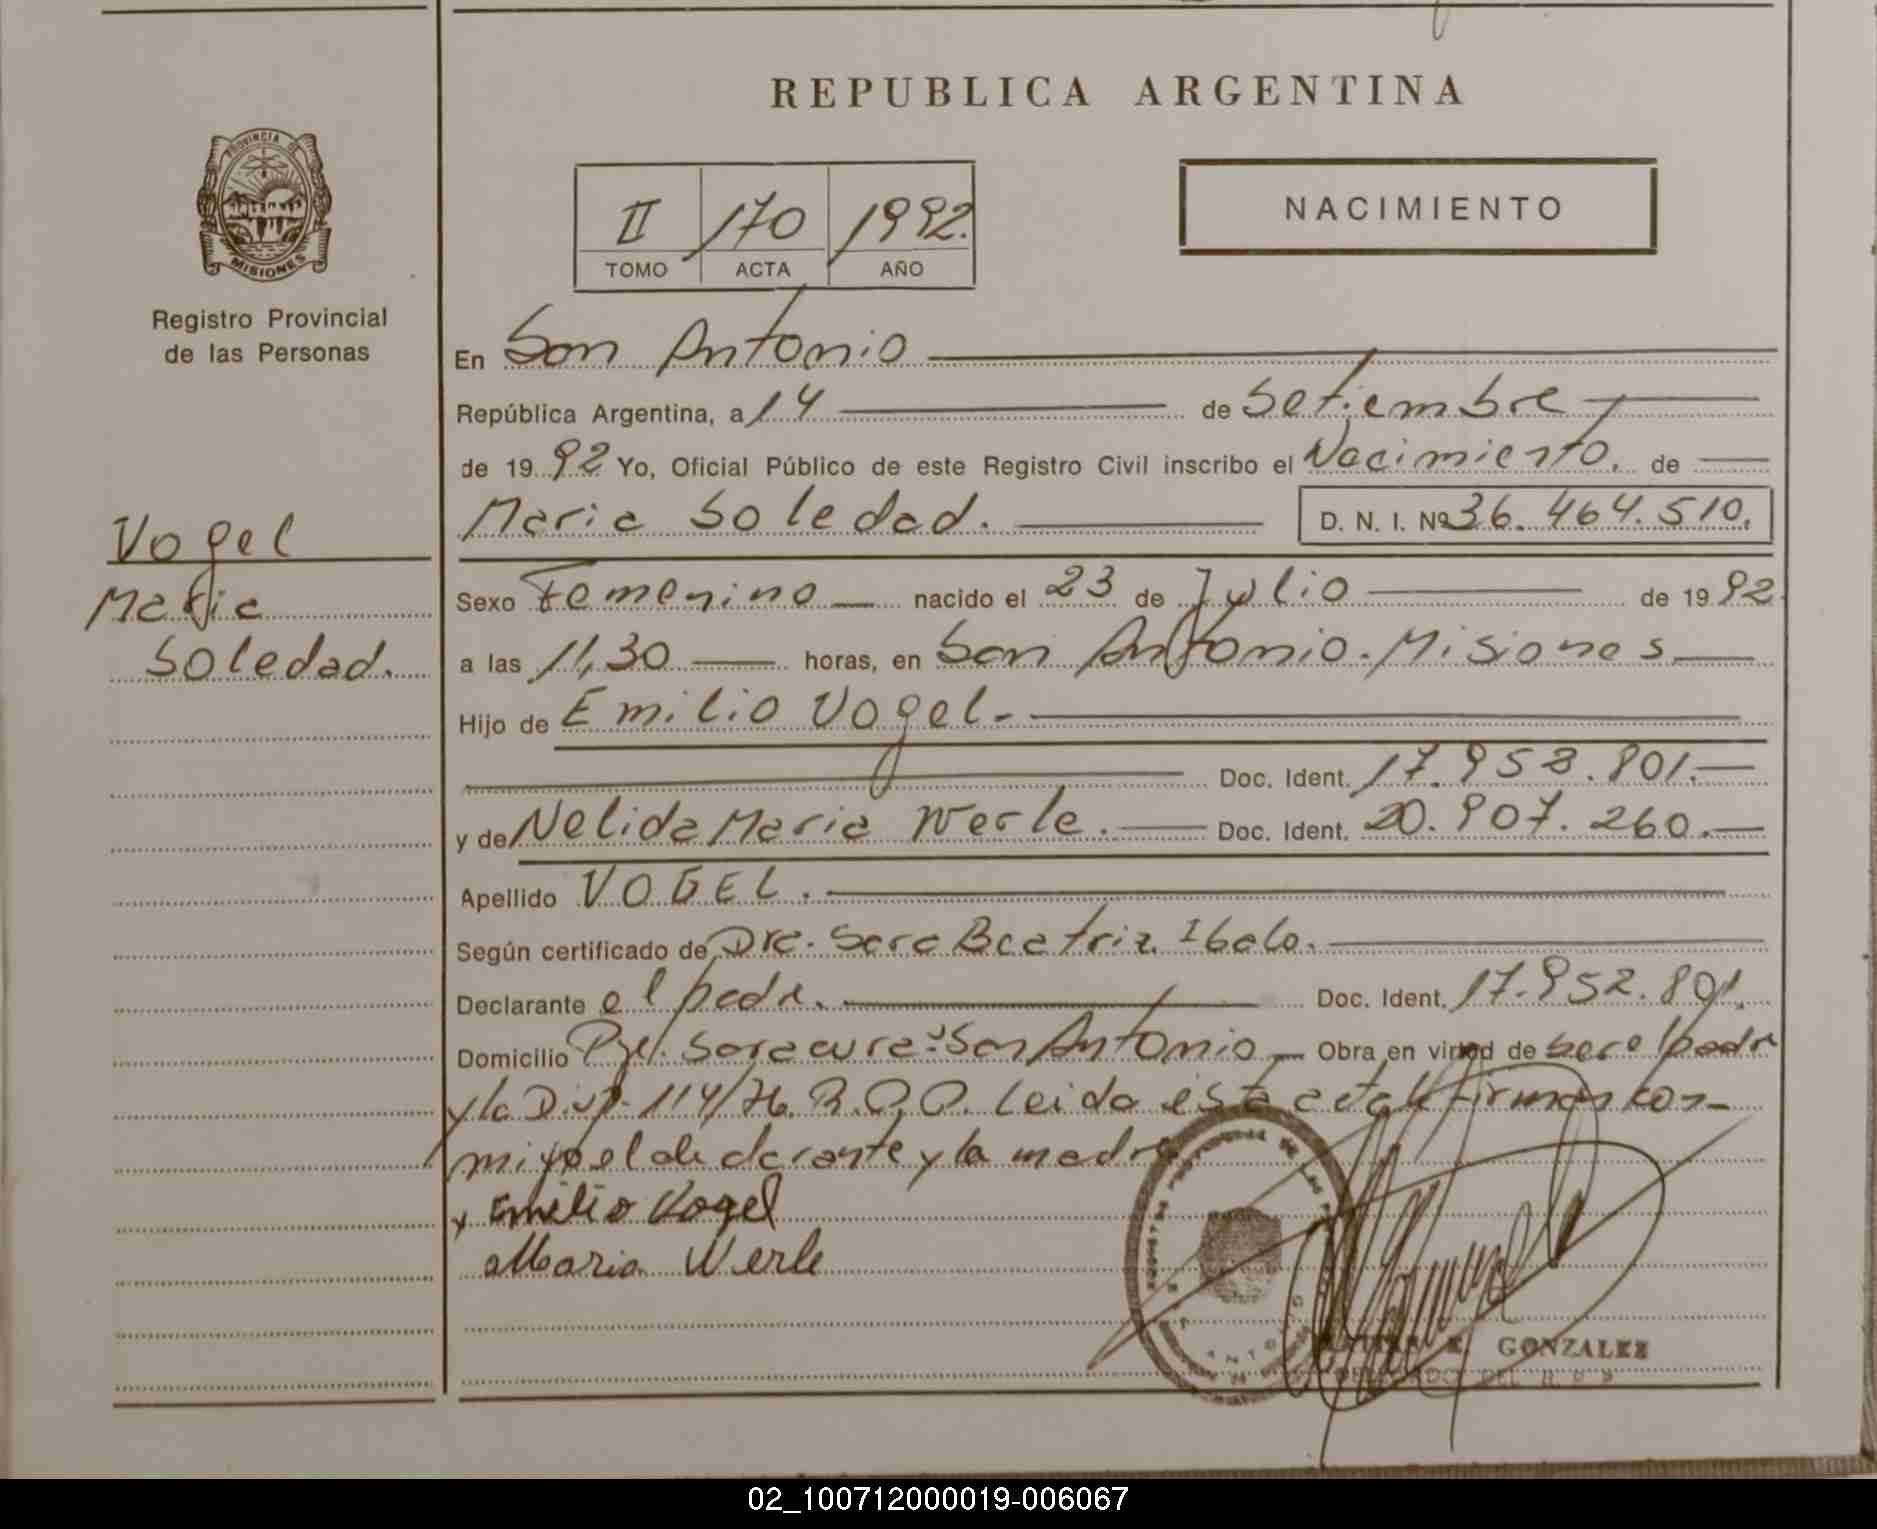 REPUBLICA ARGENTINA
PROVINCIA DE
MISIONES
Registro Provincial
de las Personas
II 170 1992.
TOMO ACTA AÑO
NACIMIENTO
En San Antonio
República Argentina, a 14 de Setiembre
de 1992 Yo, Oficial Público de este Registro Civil inscribo el Nacimiento. de
Maria Soledad. D. N. I. Nº 36.464.510.
Vogel
Maria
Soledad.
Sexo Femenino nacido el 23 de Julio de 1992
a las 11,30 horas, en San Antonio. Misiones
Hijo de Emilio Vogel.
Doc. Ident.
y de Nelida Maria Werle. Doc. Ident. 20.907.260.
Apellido VOGEL.
Según certificado de Dra. Sara Beatriz Ibalo.
Declarante el padre. Doc. Ident. 17.952.801.
Domicilio Pje. Saracura: San Antonio Obra en virtud de ser el padre
y la Disp. 114/76. Leida esta acta la firman con
migo el declarante y la madre
x Emilio Vogel
Maria Werle
GONZALEZ
02_100712000019-006067